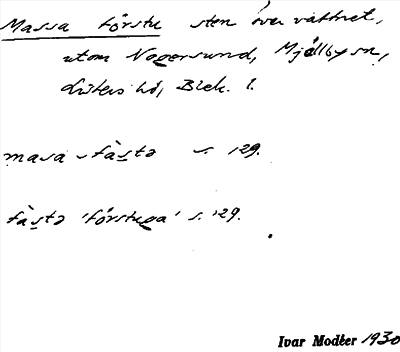 Massa första sten över vattnet,
utom Nogersund, Mjällby sn,
Listers hd, Blek. l.
masa-fàsta s. 129.
fàsta 'förstuga' s. 129.
Ivar Modéer 1930